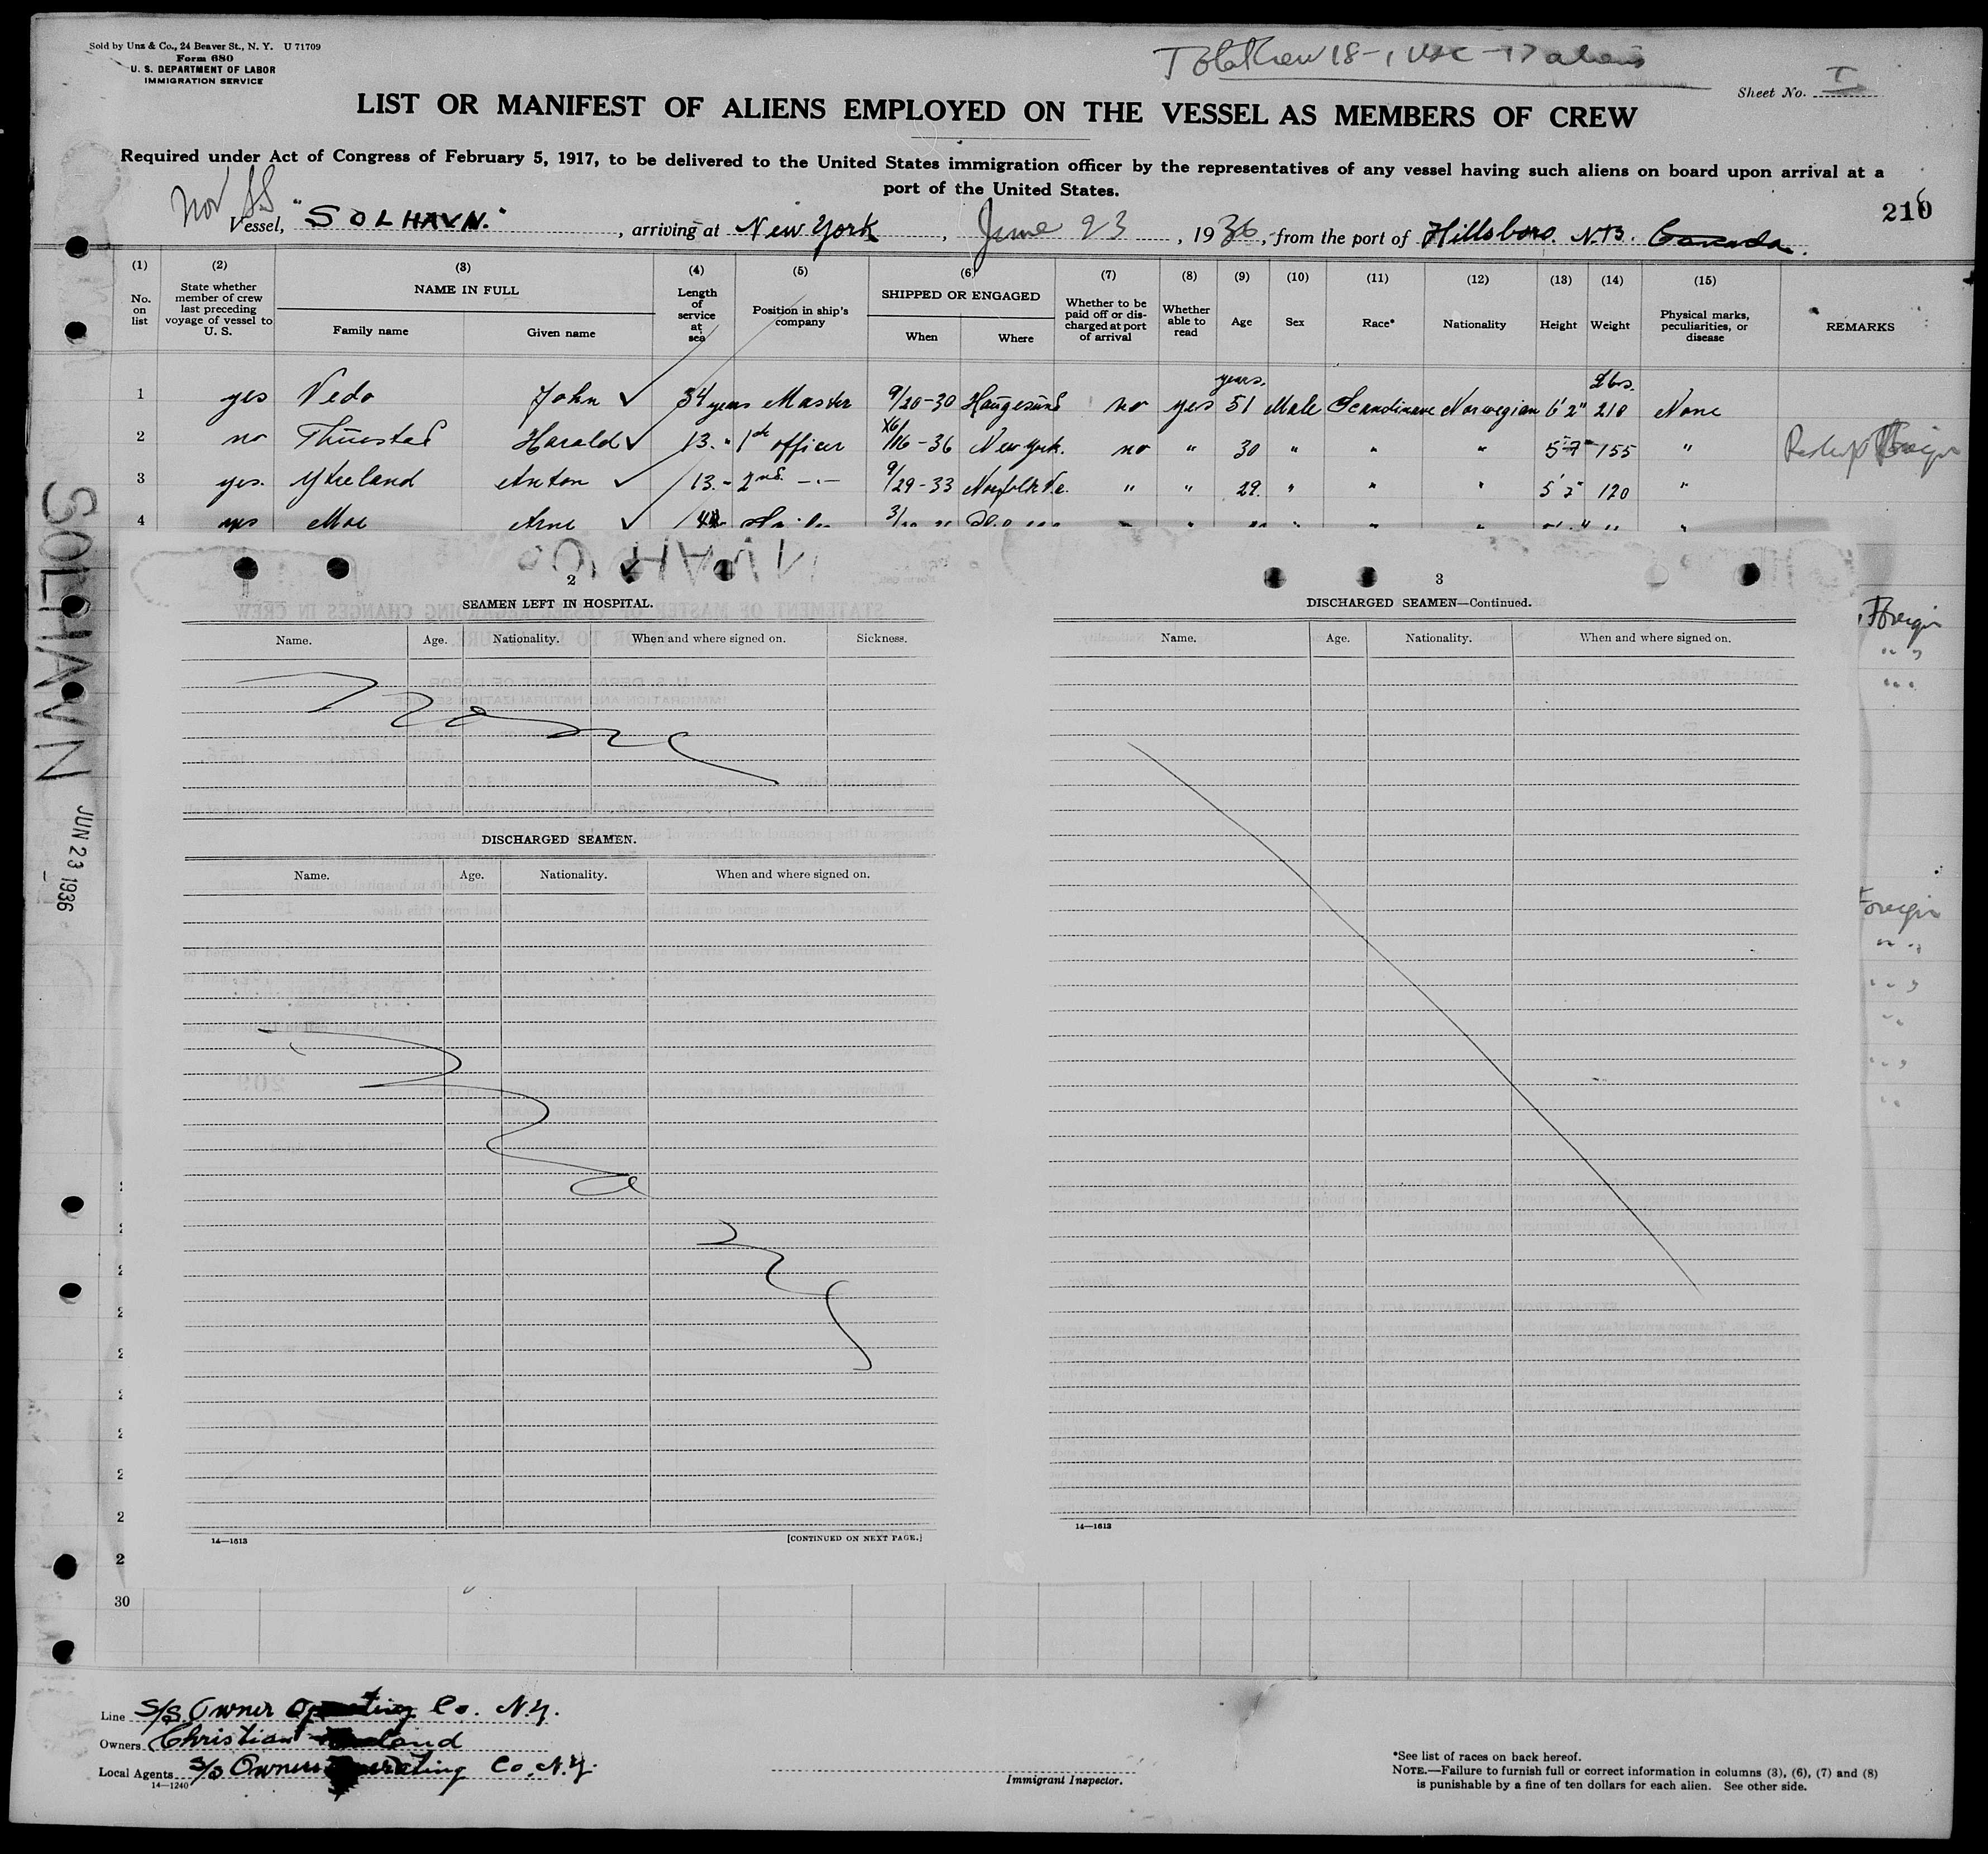 Sold by Unz & Co., 24 Beaver St., N. Y. U 71709
Form 680
U. S. DEPARTMENT OF LABOR
IMMIGRATION SERVICE
Sheet No. I
LIST OR MANIFEST OF ALIENS EMPLOYED ON THE VESSEL AS MEMBERS OF CREW
Required under Act of Congress of February 5, 1917, to be delivered to the United States immigration officer by the representatives of any vessel having such aliens on board upon arrival at a
port of the United States.
Nor SS
210
Vessel, "SOLHAVN." , arriving at New York , June 23 , 1936, from the port of Hillsboro. N.B. Canada.
(1) (2) (3) (4) (5) (6) (7) (8) (9) (10) (11) (12) (13) (14) (15)
No. on list
State whether member of crew last preceding voyage of vessel to U. S.
NAME IN FULL
Family name
Given name
Length of service at sea
Position in ship's company
SHIPPED OR ENGAGED
When
Where
Whether to be paid off or discharged at port of arrival
Whether able to read
Age
Sex
Race*
Nationality
Height
Weight
Physical marks, peculiarities, or disease
REMARKS
years. Lbs.
1 yes Vedo John ✓ 34 years Master 9/20-30 Haugesund no yes 51 Male Scandinave Norwegian 6'2" 210 None
2 no Harald ✓ 13. " 1st officer -36 New York. no " 30 " " " 155 "
3 yes. Anton ✓ 13. " 2nd -"- 9/29-33 Norfolk Va. " " 29. " " " 120 "
4 yes Moe Arne ✓
SOLHAVN
JUN 23 1936
Foreign
" "
" "
Foreign
" "
2
SEAMEN LEFT IN HOSPITAL.
Name. Age. Nationality. When and where signed on. Sickness.
None
DISCHARGED SEAMEN.
Name. Age. Nationality. When and where signed on.
14—1613
[CONTINUED ON NEXT PAGE.]
3
DISCHARGED SEAMEN—Continued.
Name. Age. Nationality. When and where signed on.
14—1613
30
Line S/S. Owner Operating Co. N.Y.
Owners Christian
Local Agents S/S Owners Operating Co. N.Y.
14—1240
Immigrant Inspector.
*See list of races on back hereof.
NOTE.—Failure to furnish full or correct information in columns (3), (6), (7) and (8)
is punishable by a fine of ten dollars for each alien. See other side.